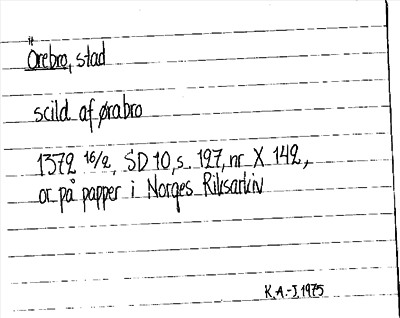 Örebro, stad
scild af ørabro
1372 16/2, SD 10, s. 127, nr X 142,
or på papper i Norges Riksarkiv
K.A.-I. 1975